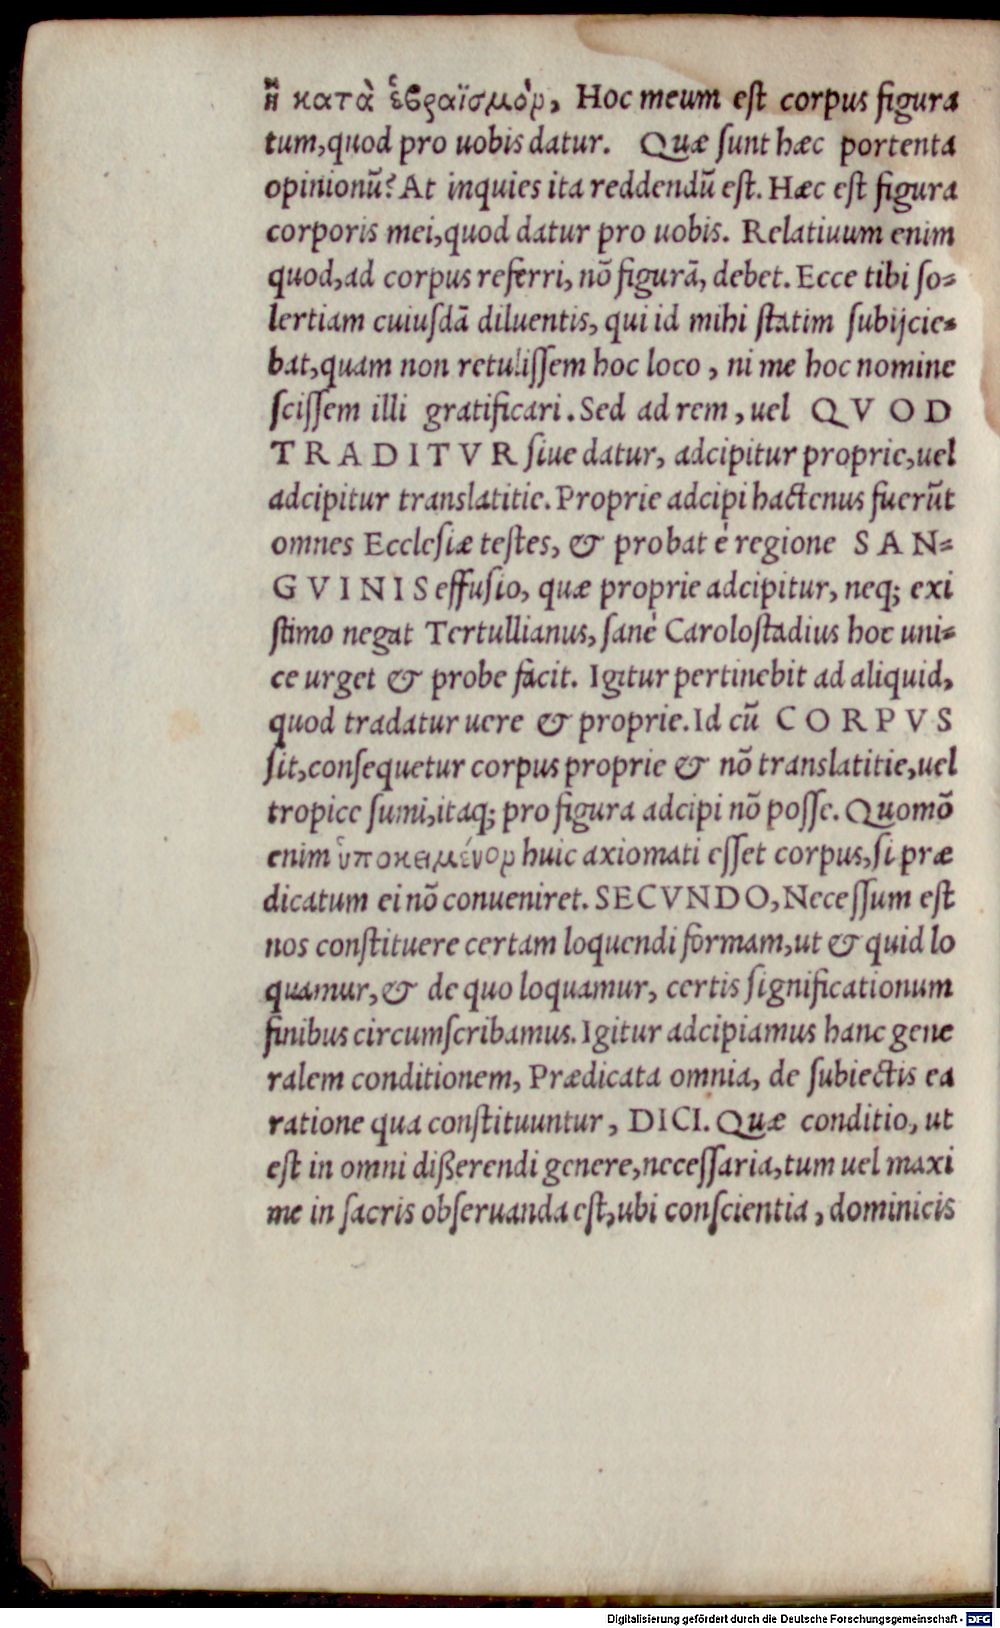 ἢ κατὰ ἑβραϊσμὸν, Hoc meum eſt corpus figura
tum,quod pro uobis datur. Quæ ſunt hæc portenta
opinionū? At inquies ita reddendū eſt. Hæc eſt figura
corporis mei,quod datur pro uobis. Relatiuum enim
quod,ad corpus referri, nō figurā, debet. Ecce tibi ſo-
lertiam cuiuſdā diluentis, qui id mihi ſtatim ſubijcie-
bat,quam non retuliſſem hoc loco, ni me hoc nomine
ſciſſem illi gratificari. Sed ad rem, uel QVOD
TRADITVR ſiue datur, adcipitur proprie,uel
adcipitur translatitie. Proprie adcipi hactenus fuerūt
omnes Eccleſiæ teſtes, & probat è regione SAN-
GVINIS effuſio, quæ proprie adcipitur, neq; exi
ſtimo negat Tertullianus, ſanè Caroloſtadius hoc uni-
ce urget & probe facit. Igitur pertinebit ad aliquid,
quod tradatur uere & proprie. Id cū CORPVS
ſit,conſequetur corpus proprie & nō translatitie,uel
tropice ſumi,itaq; pro figura adcipi nō poſſe. Quomō
enim ὑποκειμένον huic axiomati eſſet corpus,ſi præ
dicatum ei nō conueniret. SECVNDO, Neceſſum eſt
nos conſtituere certam loquendi formam,ut & quid lo
quamur,& de quo loquamur, certis ſignificationum
finibus circumſcribamus. Igitur adcipiamus hanc gene
ralem conditionem, Prædicata omnia, de ſubiectis ea
ratione qua conſtituuntur, DICI. Quæ conditio, ut
eſt in omni dißerendi genere,neceſſaria,tum uel maxi
me in ſacris obſeruanda eſt,ubi conſcientia, dominicis
Digitalisierung gefördert durch die Deutsche Forschungsgemeinschaft - DFG